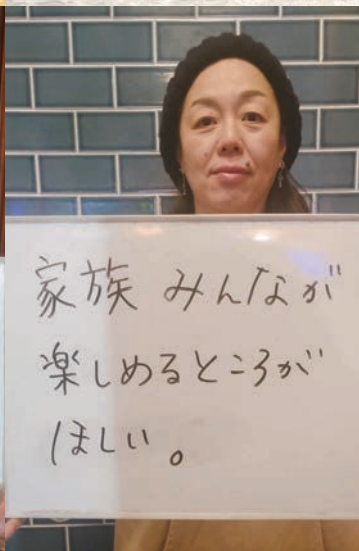 家族 みんなが
楽しめるところが
ほしい。